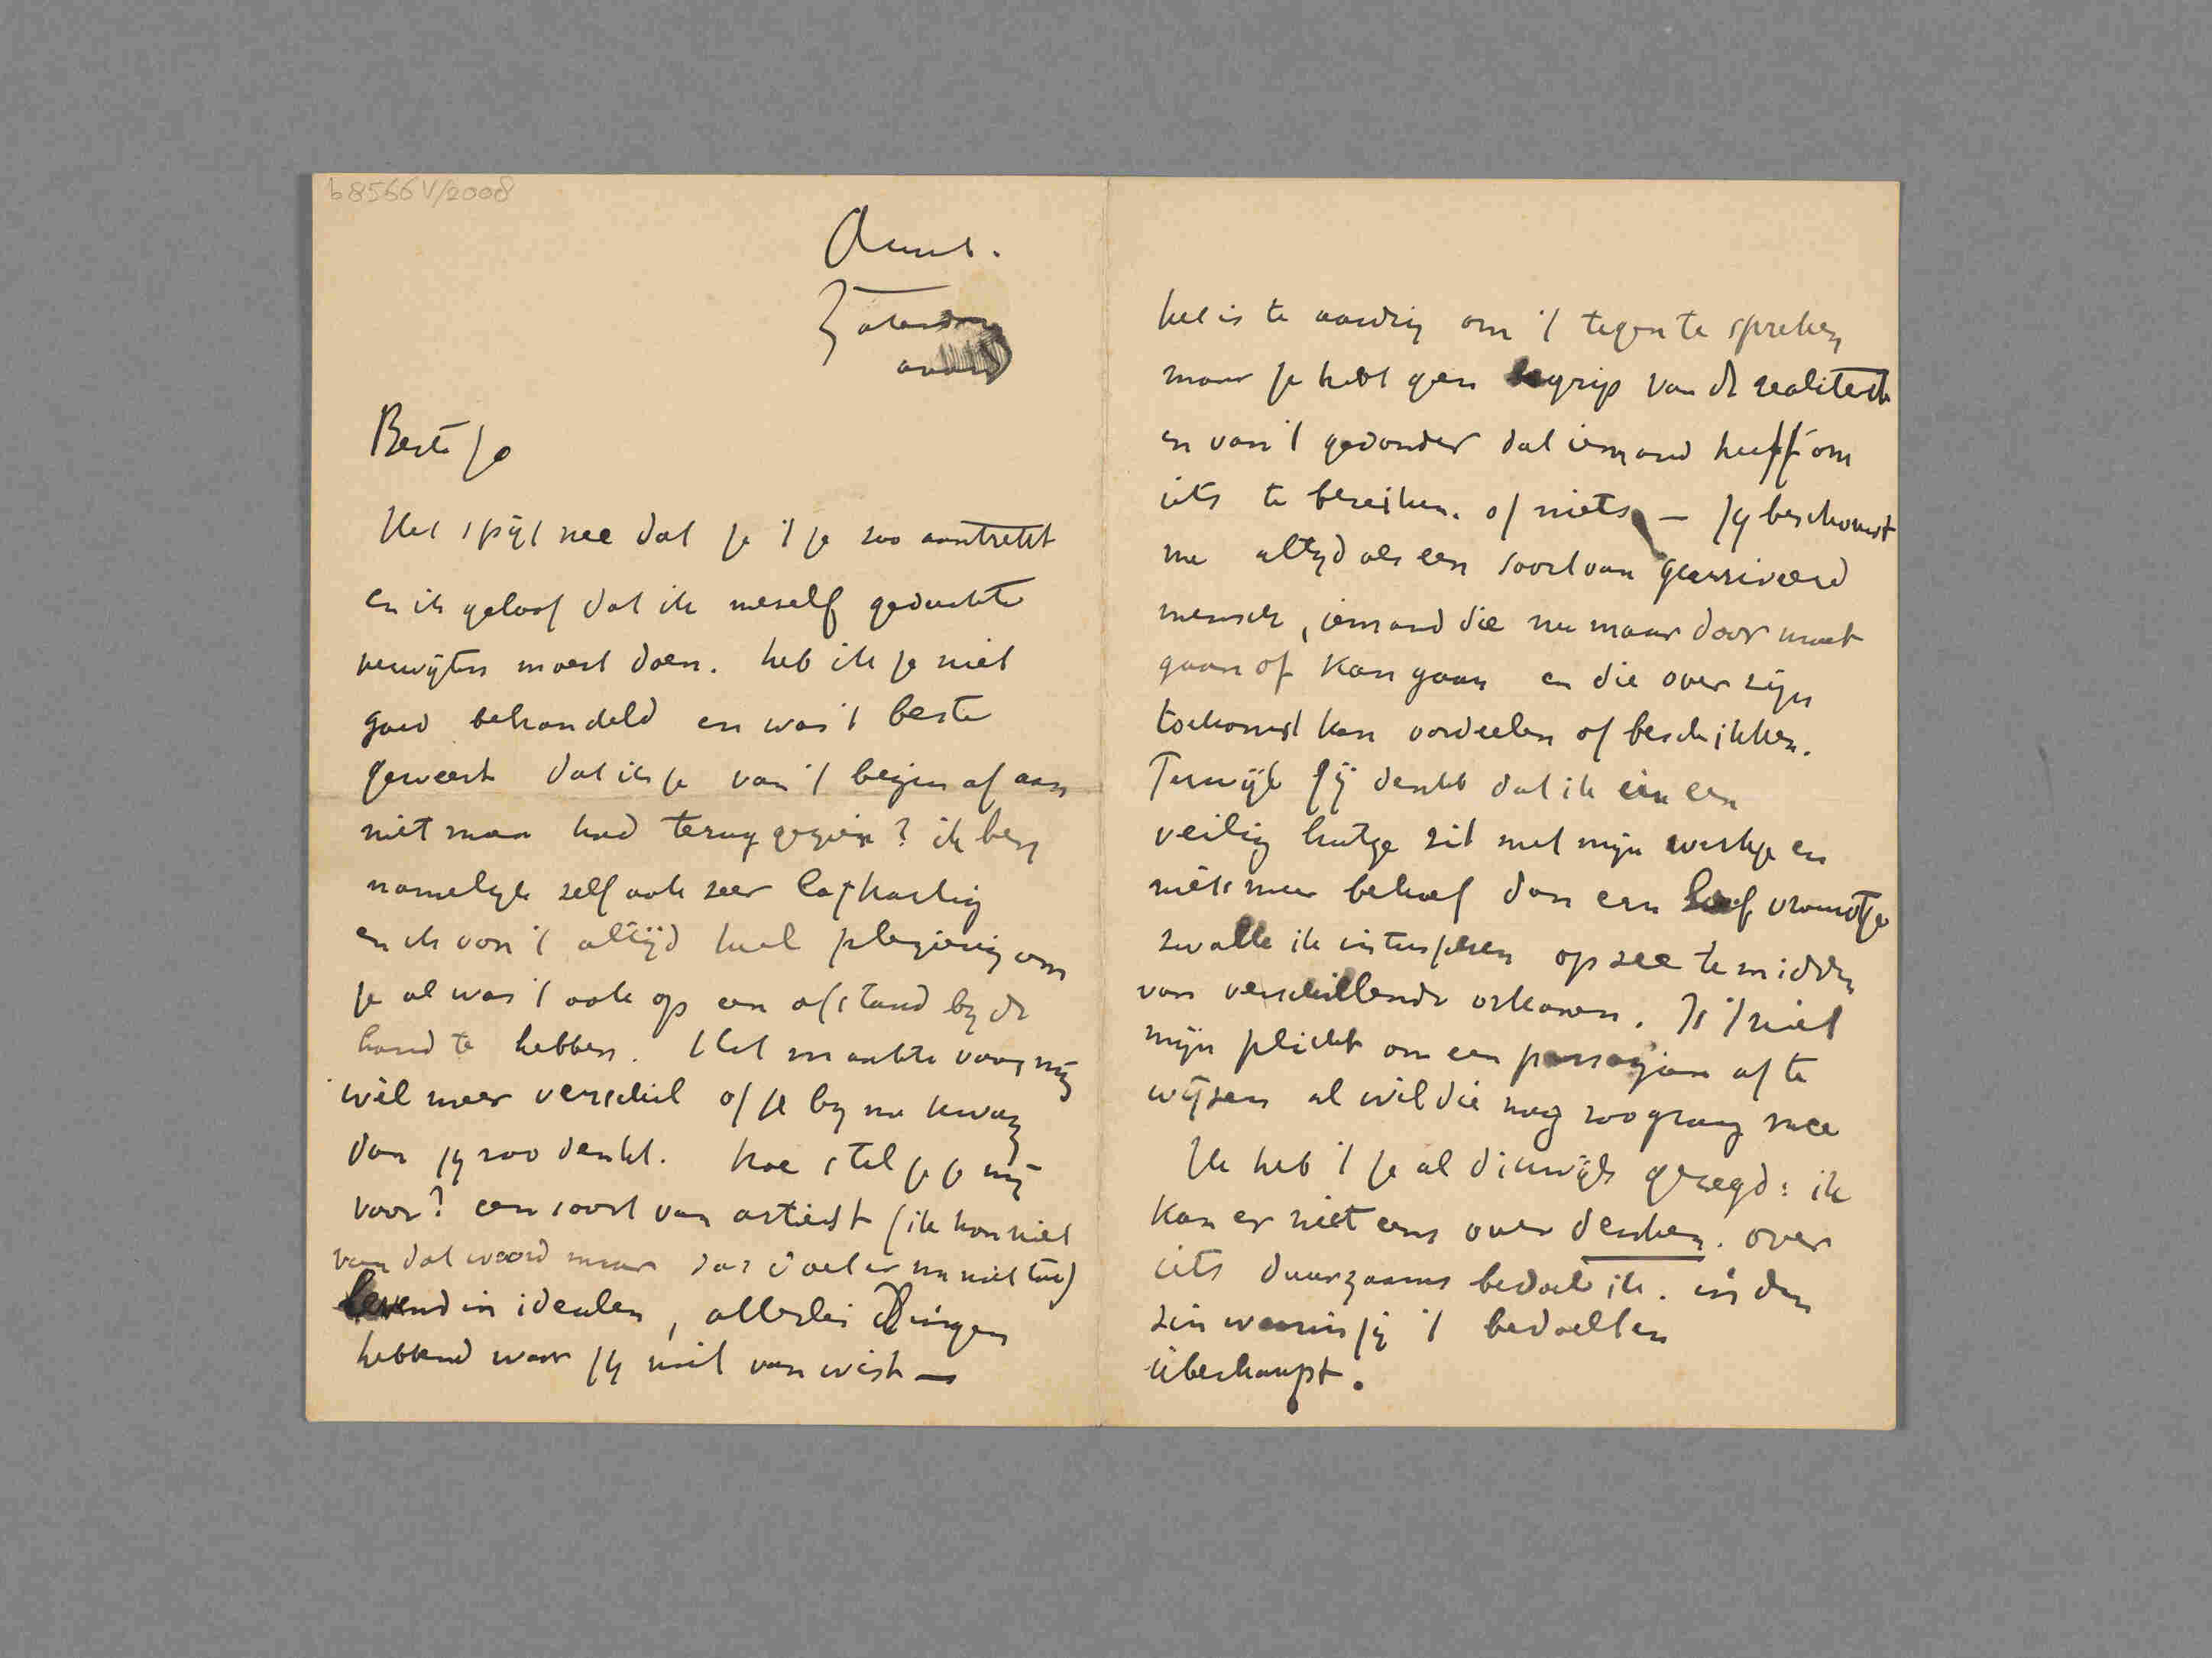 b8566 V/2008
Amst.
Zaterdag
avond
Beste Jo
Het spijt mee dat je 't je zoo aantrekt
en ik geloof dat ik meself geduchte
verwijten moest doen. heb ik je niet
goed behandeld en was 't beste
geweest dat ik je van 't begin af aan
niet maar had terug gezien? ik ben
namelyk zelf ook zeer lafhartig
en ik von 't altijd heel plezierig om
je al was 't ook op een afstand by de
hand te hebben. Het maakte voor mij
wèl meer verschil of je by me kwam
dan jy zoo denkt. hoe stel je je mij
voor? een soort van artiest (ik hou niet
van dat woord maar dat doet er nu niet toe)
levend in idealen, allerlei dingen
hebbend waar jy niet van wist —
het is te aardig om 't tegen te spreken
maar je hebt geen begrip van de realiteit
en van 't gedonder dat iemand heeft om
iets te bereiken. of niets — Jy beschouwt
me altyd als een soort van gearriveerd
mensch, iemand die nu maar door moet
gaan of kan gaan en die over zijn
toekomst kan oordeelen of beschikken.
Terwijl jij denkt dat ik in een
veilig hutje zit met mijn werkje en
niets meer behoef dan een lief vrouwtje
zwalk ik intusschen op zee te midden
van verschillende orkanen. Is 't niet
mijn plicht om een passagier af te
wijzen al wil die nog zoo graag mee
Ik heb 't je al dikwijls gezegd: ik
kan er niet eens over denken. over
iets duurzaams bedoel ik. in den
zin waarin jij 't bedoelt en
überhaupt.